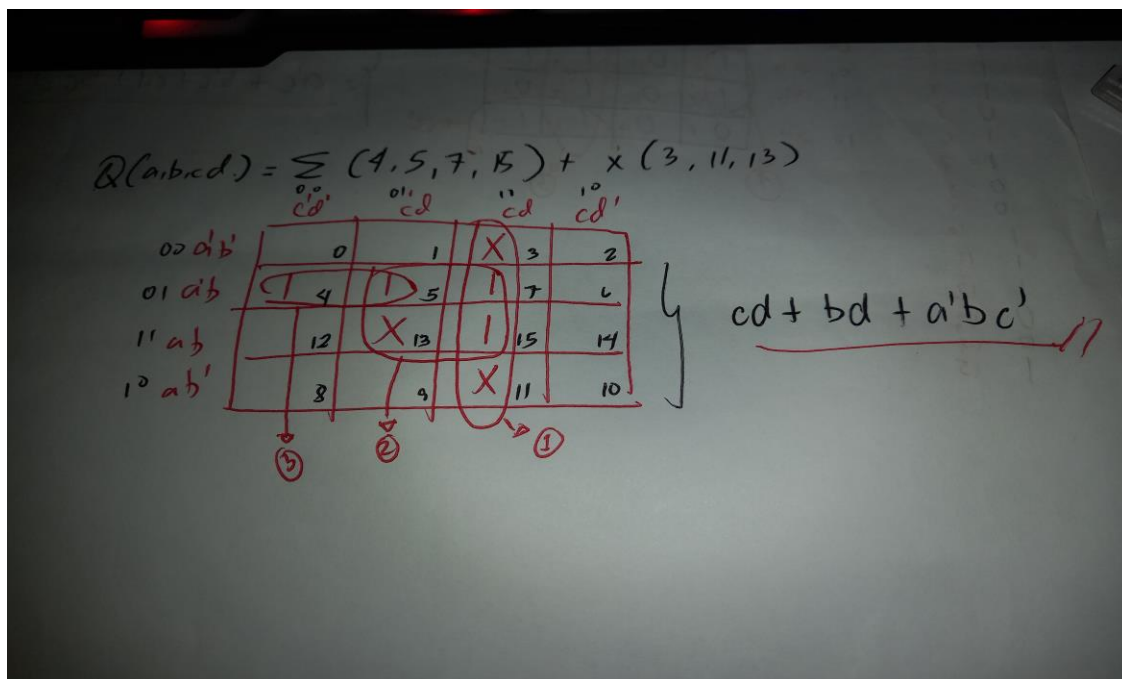 Q(a,b,c,d.) = Σ (4,5,7,15) + x (3,11,13)
00 01 11 10
c'd' c'd cd cd'
00 a'b' 0 1 X 3 2
01 a'b 1 4 1 5 1 7 6
11 ab 12 X 13 1 15 14
10 ab' 8 9 X 11 10
cd + bd + a'bc'
3 2 1